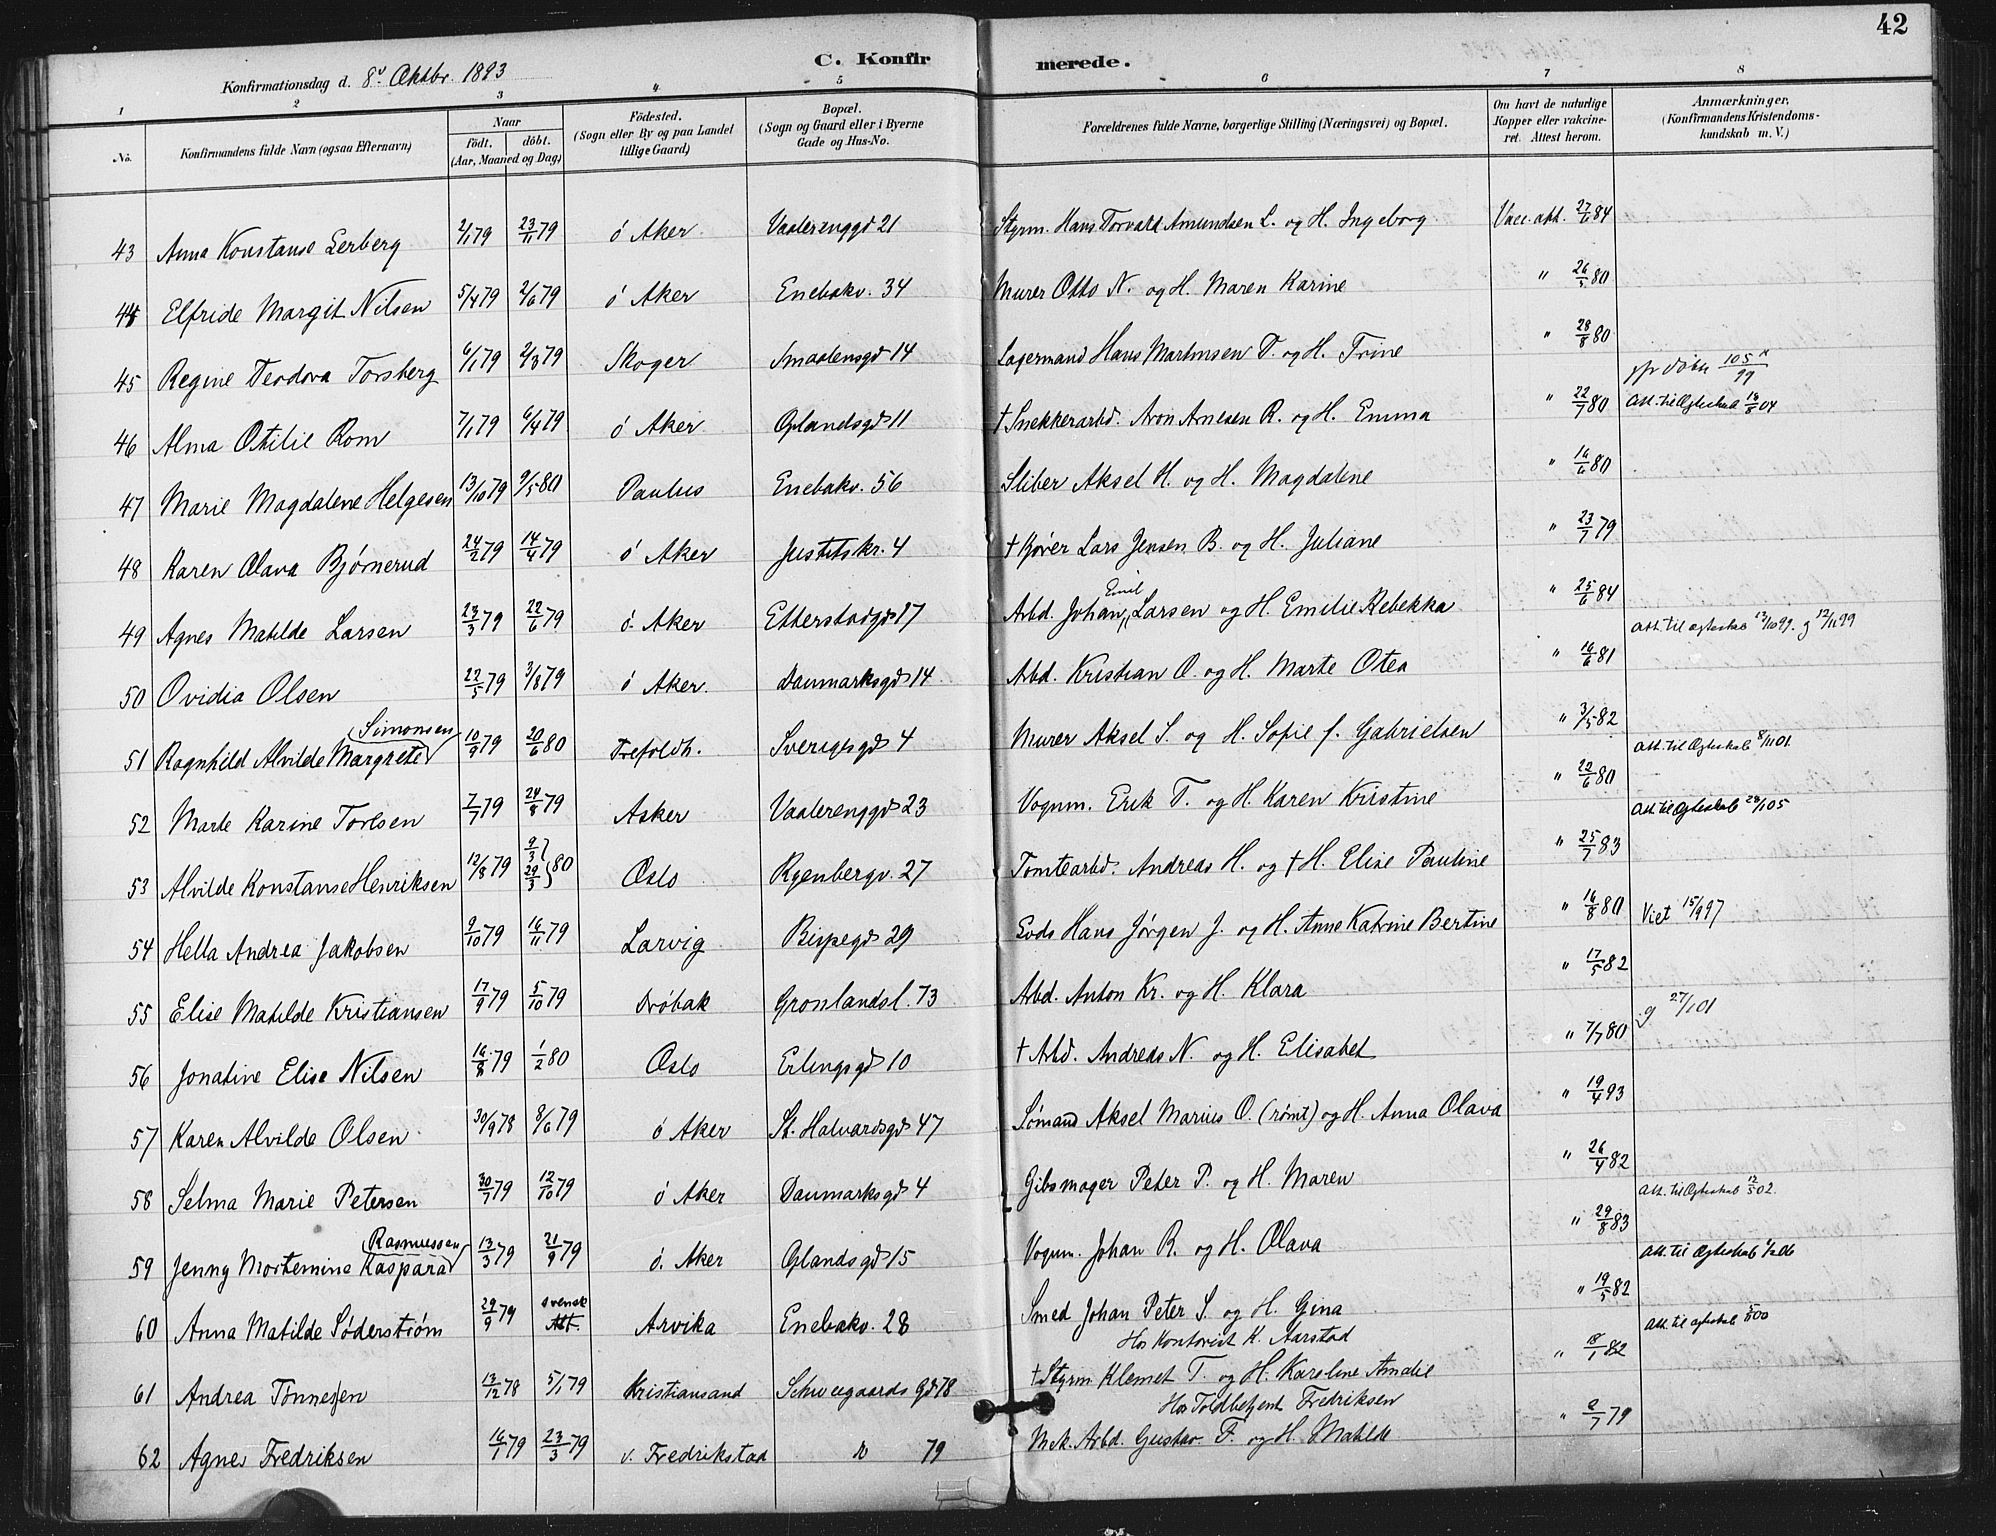 42
Konfirmationsdag d. 8de Oktbr. 1893
C. Konfirmerede.
1 2 3 4 5 6 7 8
No.
Konfirmandens fulde Navn (ogsaa Efternavn)
Naar
födt. döbt.
(Aar, Maaned og Dag)
Födested.
(Sogn eller By og paa Landet tillige Gaard)
Bopæl.
(Sogn og Gaard eller i Byerne Gade og Hus-No.
Forældrenes fulde Navne, borgerlige Stilling (Næringsvei) og Bopæl.
Om havt de naturlige Kopper eller vakcineret. Attest herom.
Anmærkninger,
(Konfirmandens Kristendomskundskab m. V.)
43 Anna Konstanse Lerberg 2/1 79 23/11 79 ö Aker Vaalerenggd 21 Styrm. Hans Torvald Amundsen L. og H. Ingeborg Vacc. att. 27/6 84
44 Elfride Margit Nilsen 5/4 79 2/6 79 ö Aker Enebakv. 34 Murer Otto N. og H. Maren Karine " 26/5 80
45 Regine Teodora Torsberg 6/1 79 2/3 79 Skoger Smaalensgd 14 Lagermand Hans Martinsen T. og H. Trine " 28/8 80
46 Alma Otilie Rom 7/1 79 6/4 79 ö Aker Oplandsgd 11 † Snekkerarbd. Aron Arnesen R. og H. Emma " 22/7 80 Att. til Ægteskab 18/8 04
47 Marie Magdalene Helgesen 13/10 79 9/5 80 Paulus Enebakv. 56 Sliber Aksel H. og H. Magdalene " 16/6 80
48 Karen Olava Bjørnerud 24/2 79 14/4 79 ö Aker Justitskr. 4 † Kjører Lars Jensen B. og H. Juliane " 23/7 79
49 Agnes Matilde Larsen 23/3 79 22/6 79 ö. Aker Etterstadgd 17 Arbd. Johan Emil Larsen og H. Emilie Rebekka " 25/6 84 att. til ægteskab 13/10 99. g 12/11 99
50 Ovidia Olsen 22/5 79 3/8 79 ö Aker. Danmarksgd 14 Arbd. Kristian O. og H. Marte Otea " 16/6 81
51 Ragnhild Alvilde Margrete Simonsen 10/9 79 20/6 80 Trefoldh. Sverigesgd 4 Murer Aksel S. og H. Sofie f. Gabrielsen " 3/5 82 att. til Ægteskab 8/11 01
52 Marte Karine Torlsen 7/7 79 24/8 79 Asker Vaalerenggd 23 Vognm. Erik T. og H. Karen Kristine " 22/6 80 Att. til Ægteskab 29/1 05
53 Alvilde Konstanse Henriksen 12/8 79 9/3 29/3 80 Oslo Ryenbergv. 27 Tomtearbd. Andreas H. og † H. Elise Pauline " 25/7 83
54 Hella Andrea Jakobsen 9/10 79 16/11 79 Larvig Bispegd 29 Hans Jørgen J. og H. Anne Katrine Bertine " 16/8 80 Viet 15/9 97
55 Elise Matilde Kristiansen 17/9 79 5/10 79 Drøbak Grønlandsl. 73 Arbd. Anton Kr. og H. Klara " 17/5 82
56 Jonatine Elise Nilsen 16/8 79 1/2 80 Oslo Erlingsgd 10 † Arbd. Andreas N. og H. Elisabet " 7/7 80 g 27/1 01
57 Karen Alvilde Olsen 30/9 78 8/6 79 ö Aker St. Halvardsgd 47 Sømand Aksel Marius O. (rømt) og H. Anna Olava " 19/4 93
58 Selma Marie Petersen 30/7 79 12/10 79 ö Aker Danmarksgd 4 Gibsmager Peter P. og H. Maren " 26/4 82 Att. til Ægteskab 12/5 02.
59 Jenny Mortemine Kaspara Rasmussen 13/3 79 21/9 79 ö. Aker Oplandsgd 15 Vognm. Johan R. og H. Olava " 29/8 83 Att. til Ægteskab 1/2 06
60 Anna Matilde Søderstrøm 29/9 79 svensk Att. Arvika Enebakv. 28 Smed Johan Peter S. og H. Gina " 19/5 82 Att. til ægteskab
61 Andrea Tønnesen 13/12 78 5/1 79 Kristiansand Schweigaards gd 78 Hos Kontorist K. Aarstad
† Styrm Klemet T. og H. Karoline Amalie " 18/1 82
62 Agnes Fredriksen 16/1 79 23/3 79 v. Fredrikstad Do 79 Hos Toldbetjent Fredriksen
Mek. Arbd. Gustav F. og H. Matilde " 2/7 79